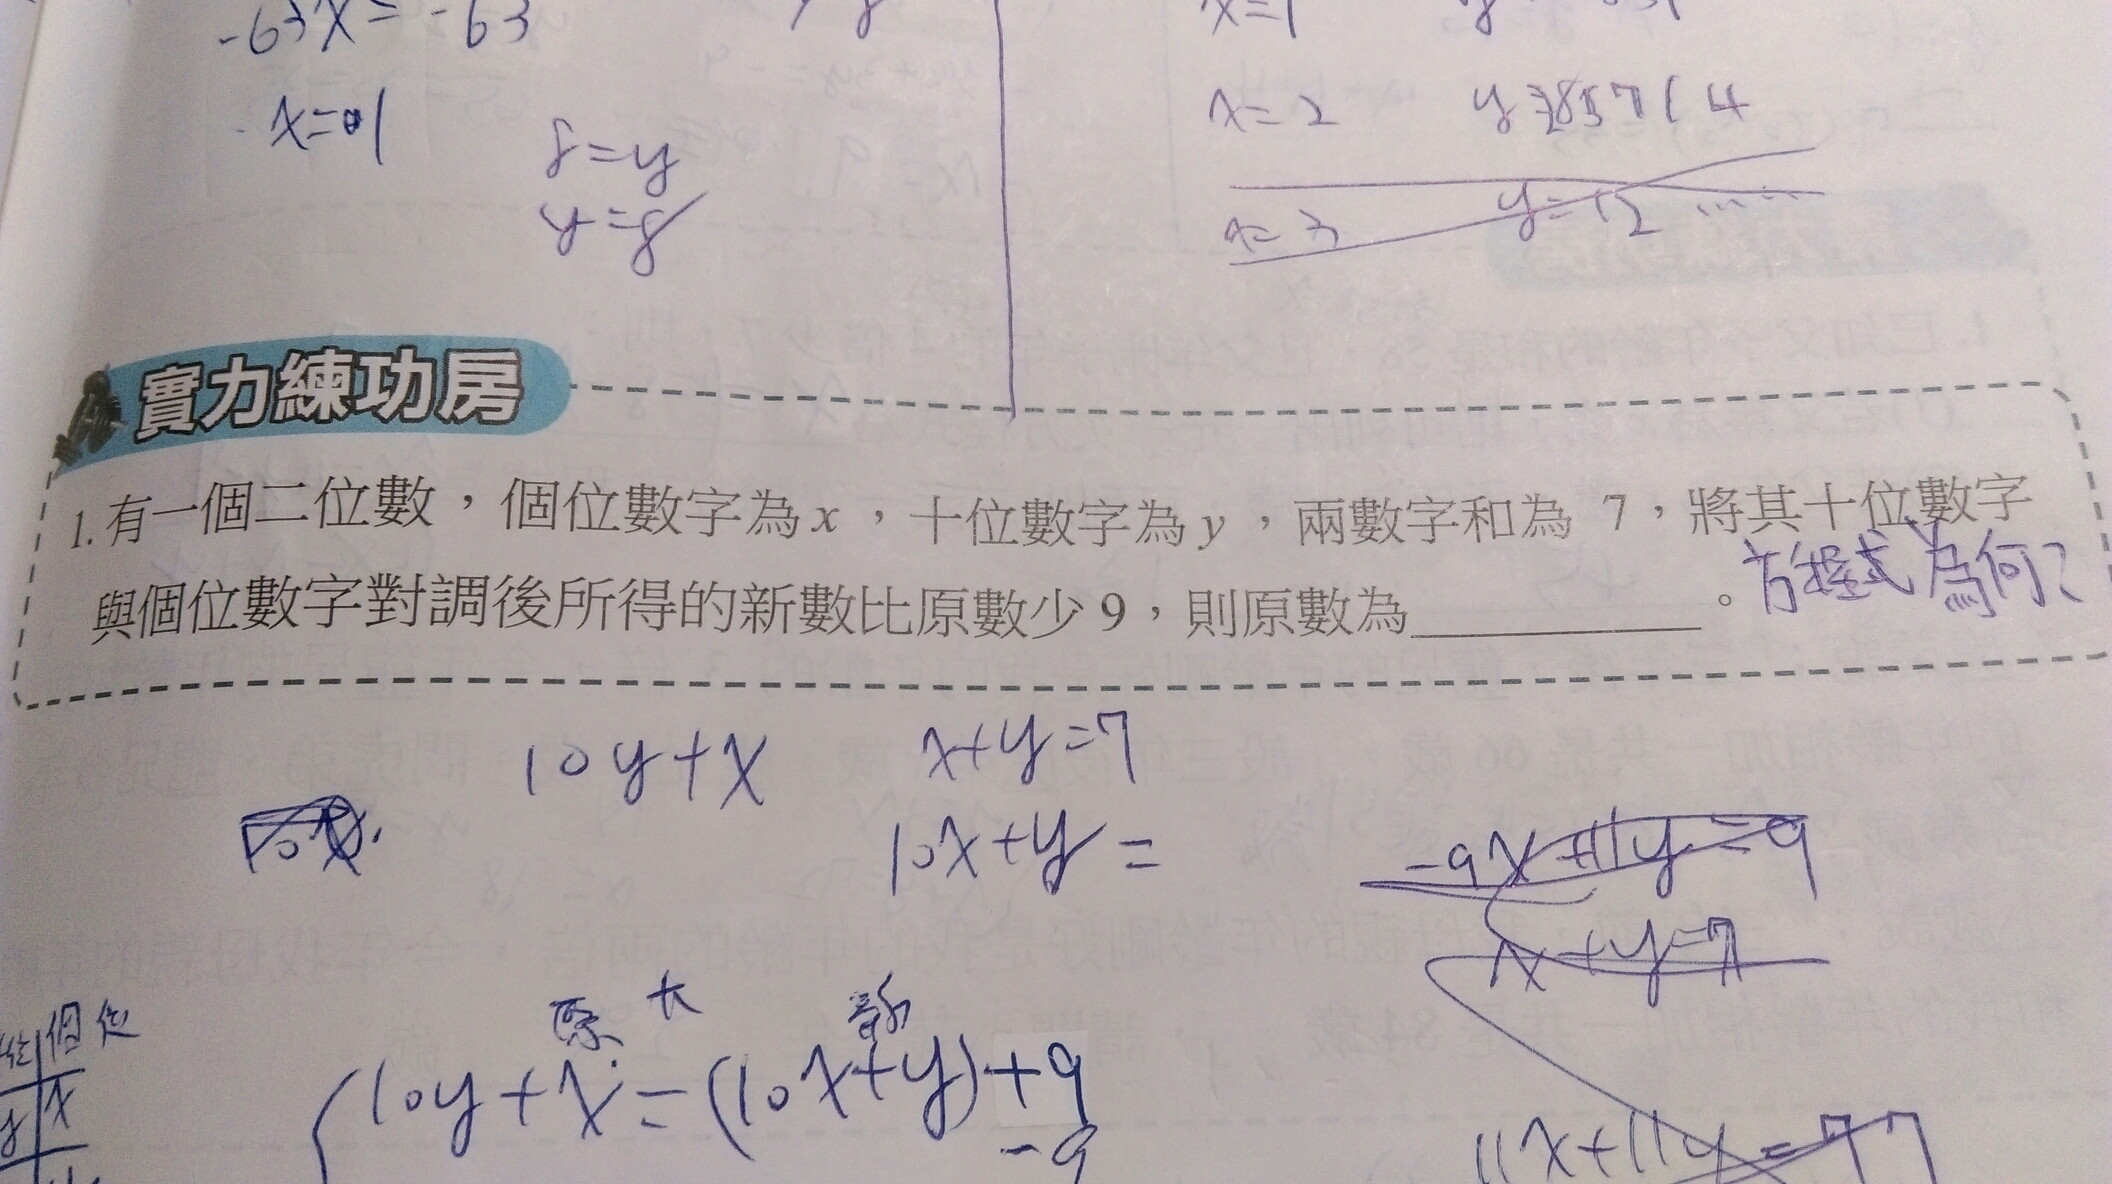 -63x=-63
x=1
8=y
y=8
x=1
x=2
x=3 y=12……
實力練功房
1.有一個二位數，個位數字為x，十位數字為y，兩數字和為 7，將其十位數字
與個位數字對調後所得的新數比原數少9，則原數為__________。
方程式為何？
10y+x x+y=7
10x+y=
-9x+11y=9
x+y=7
原 大 新
個位
10y+x=(10x+y)+9
y x
-9
11x+11y=77